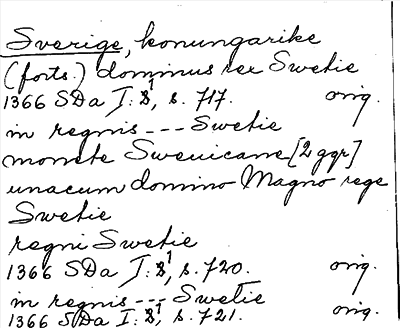 Sverige, konungarike
(forts.) dominus rex Swetie
1366 SDa I: 8¹, s. 717. orig.
in regnis --- Swetie
monete Sweuicane [2 ggr]
unacum domino Magno rege
Swetie
regni Swetie
1366 SDa I: 8¹, s. 720. orig.
in regnis --- Swetie
1366 SDa I: 8¹, s. 721. orig.